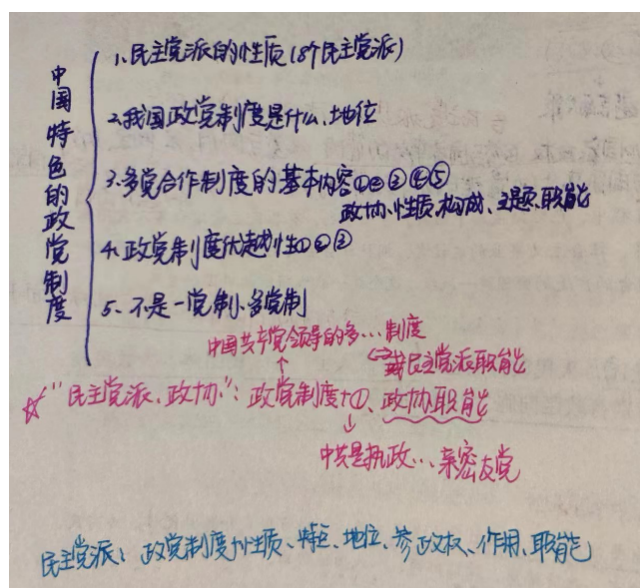 中国特色的政党制度
1、民主党派的性质(8个民主党派)
2、我国政党制度是什么、地位
3、多党合作制度的基本内容①②③④⑤
政协、性质、构成、主题、职能
4、政党制度优越性①②③
5、不是一党制、多党制
中国共产党领导的多…制度
或民主党派职能
☆"民主党派、政协":政党制度+①、政协职能
中共是执政…亲密友党
民主党派:政党制度+性质、特征、地位、参政权、作用、职能